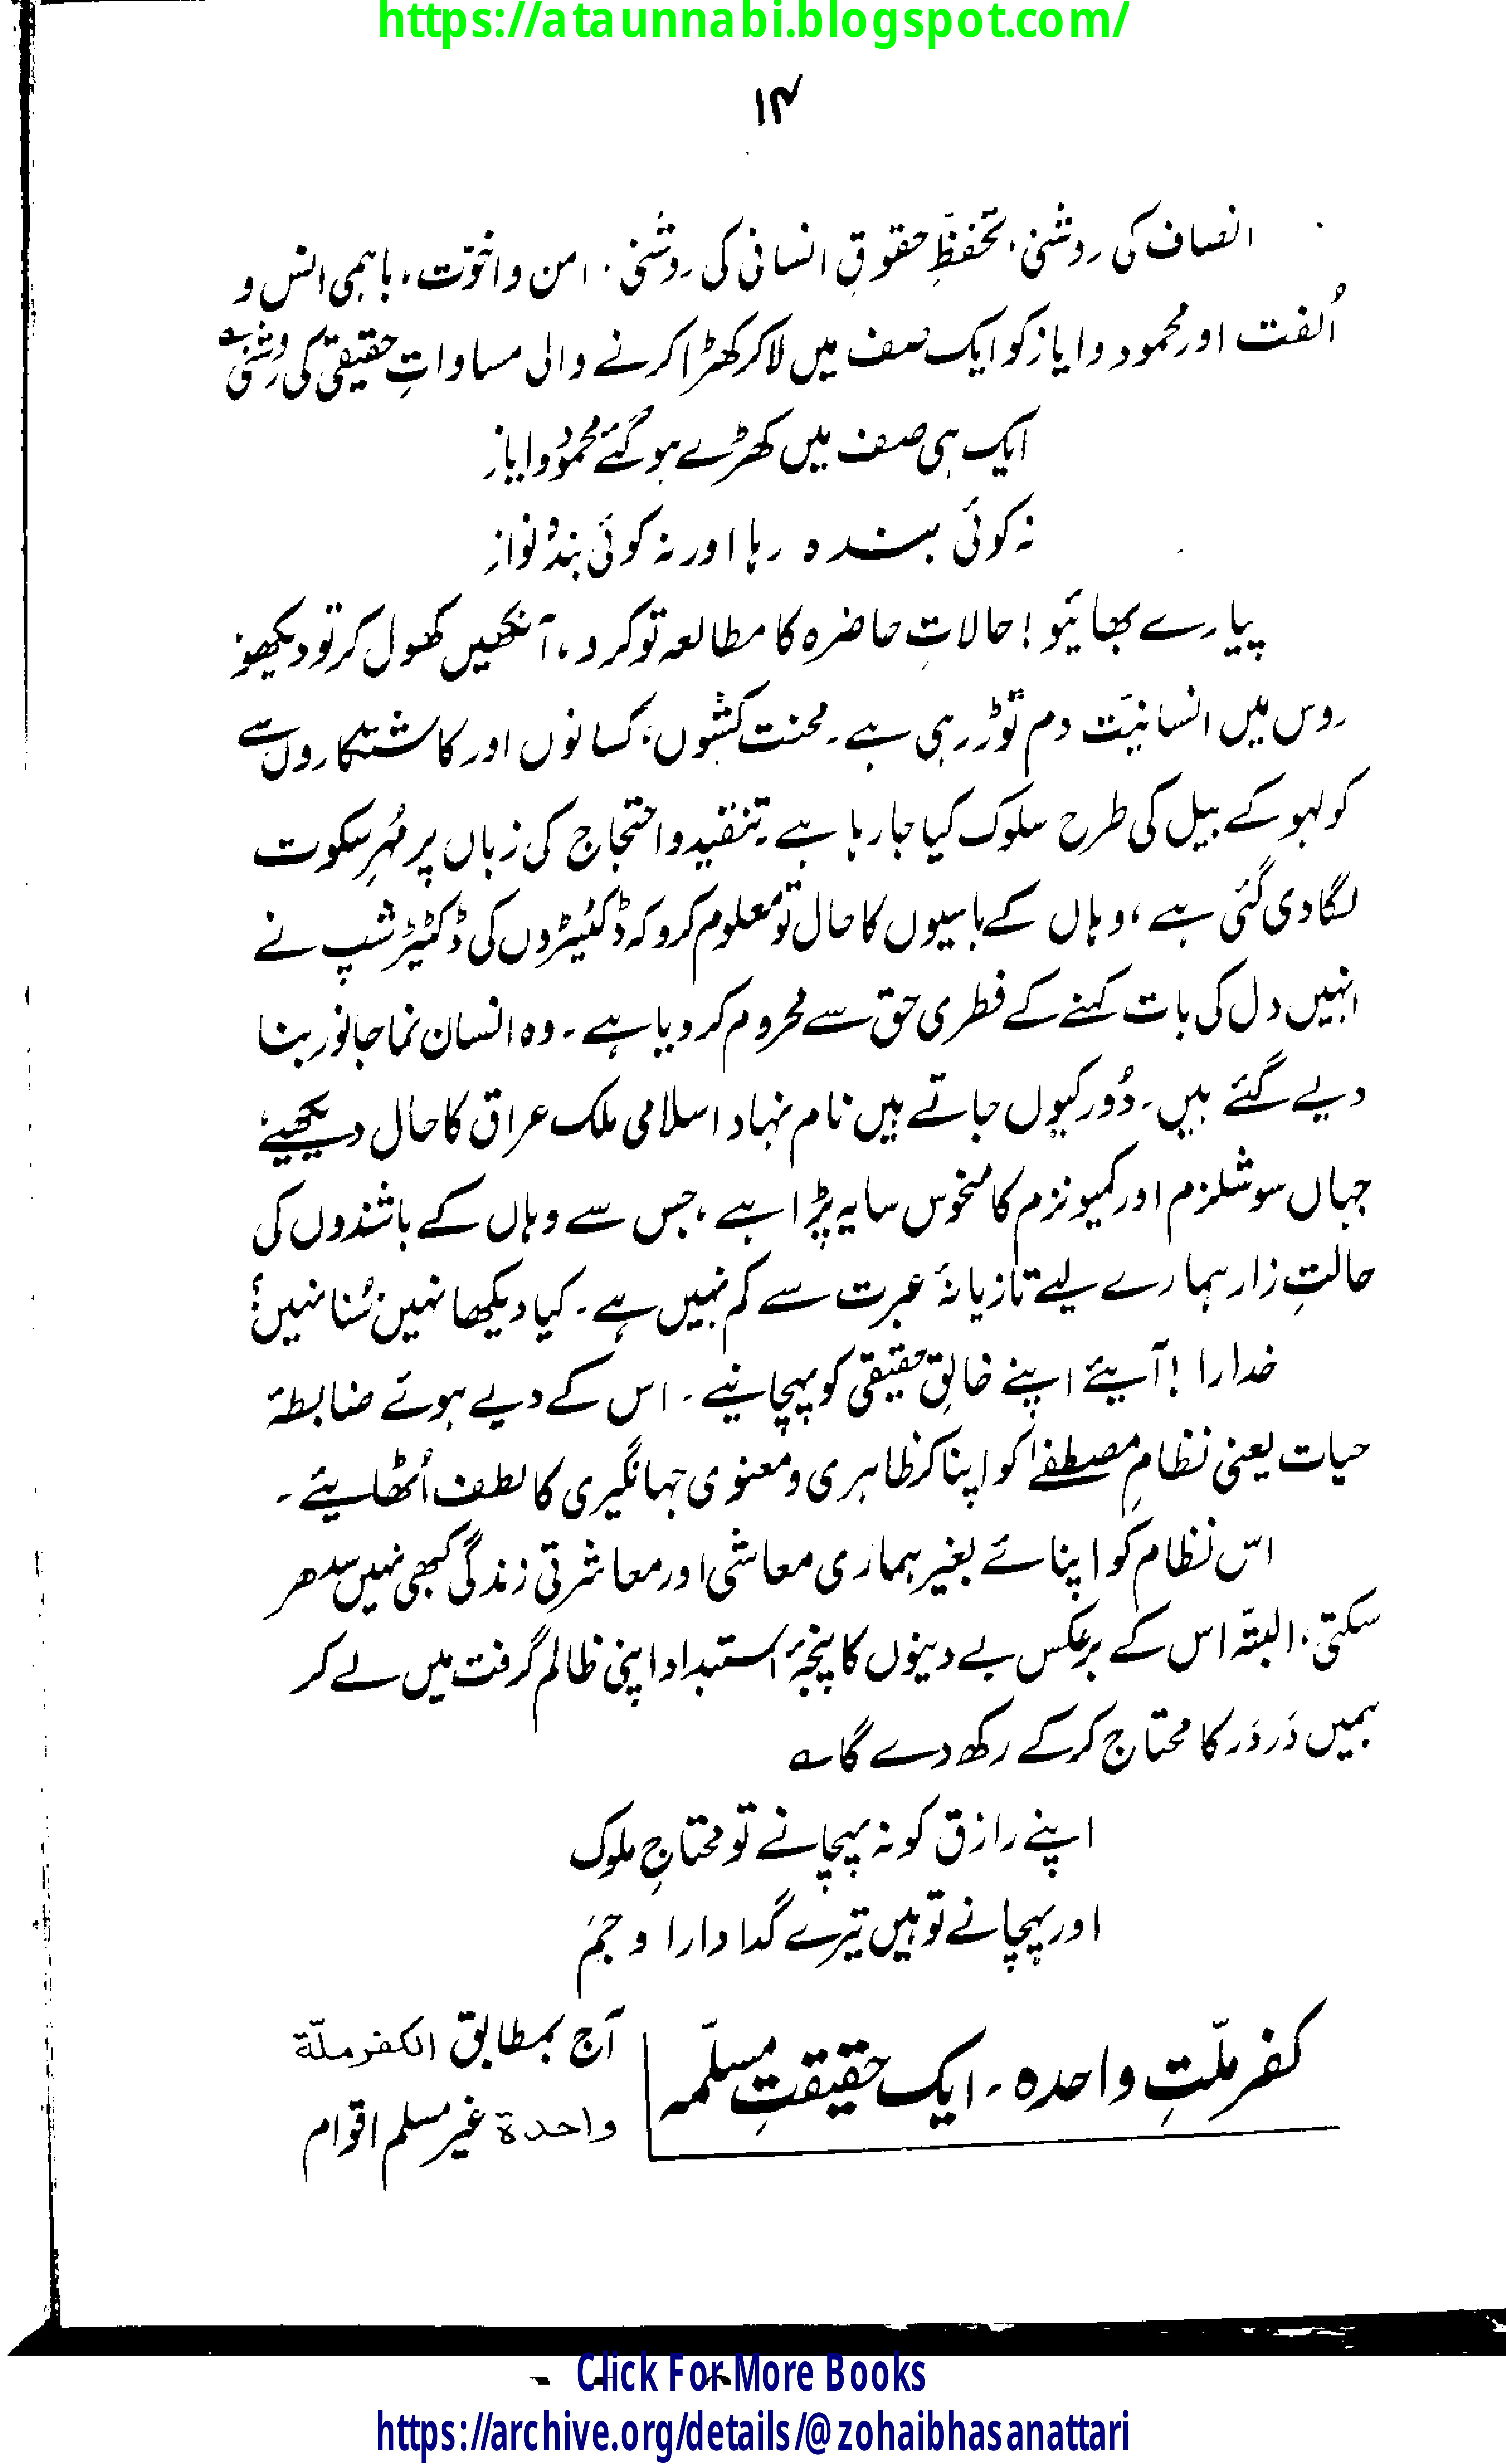 https://ataunnabi.blogspot.com/
۱۴
انصاف کی روشنی، تحفظِ حقوقِ انسانی کی روشنی، امن و اخوّت، باہمی انس و
اُلفت اور محمود و ایاز کو ایک صف میں لا کر کھڑا کرنے والی مساواتِ حقیقی کی روشنی ؎
ایک ہی صف میں کھڑے ہو گئے محمود و ایاز
نہ کوئی بندہ رہا اور نہ کوئی بندہ نواز
پیارے بھائیو! حالاتِ حاضرہ کا مطالعہ تو کرو، آنکھیں کھول کر تو دیکھو:
روس میں انسانیّت دم توڑ رہی ہے۔ محنت کشوں، کسانوں اور کاشتکاروں سے
کولہو کے بیل کی طرح سلوک کیا جا رہا ہے۔ تنقید و احتجاج کی زباں پر مُہرِ سکوت
لگا دی گئی ہے، وہاں کے باسیوں کا حال تو معلوم کرو کہ ڈکٹیٹروں کی ڈکٹیٹر شپ نے
انہیں دل کی بات کہنے کے فطری حق سے محروم کر دیا ہے۔ وہ انسان نما جانور بنا
دیے گئے ہیں۔ دُور کیوں جاتے ہیں نام نہاد اسلامی ملک عراق کا حال دیکھیئے
جہاں سوشلزم اور کمیونزم کا منحوس سایہ پڑا ہے، جس سے وہاں کے باشندوں کی
حالتِ زار ہمارے لیے تازیانۂ عبرت سے کم نہیں ہے۔ کیا دیکھا نہیں، سُنا نہیں؟
خدارا! آیئے اپنے خالقِ حقیقی کو پہچانیے۔ اس کے دیے ہوئے ضابطۂ
حیات یعنی نظامِ مصطفےٰ کو اپنا کر ظاہری و معنوی جہانگیری کا لطف اُٹھایئے۔
اس نظام کو اپنائے بغیر ہماری معاشی اور معاشرتی زندگی کبھی نہیں سدھر
سکتی، البتّہ اس کے برعکس بے دینوں کا پنجۂ استبداد اپنی ظالم گرفت میں لے کر
ہمیں دَر دَر کا محتاج کر کے رکھ دے گا ؎
اپنے رازق کو نہ پہچانے تو محتاجِ ملوک
اور پہچانے تو ہیں تیرے گدا دارا و جم
کفر ملّتِ واحدہ۔ ایک حقیقتِ مسلّمہ
آج بمطابق الکفر ملّة
واحدة غیر مسلم اقوام
Click For More Books
https://archive.org/details/@zohaibhasanattari